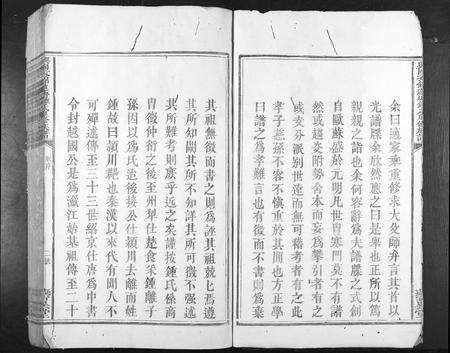 余曰適家乘重修求大夋師弁言其首以
光譜牒余欣然應之曰是舉也正所以篤
親親之誼也余何容辭爲夫譜牒之式創
自歐蘇盛於元明凡世胄寒門莫不有譜
然或趨炎附勢舍本而妄爲攀引者有之
或支分派別世遠而無可稽考者有之此
孝子慈孫不容不慎重於其間也方正學
曰譜之爲孝難言也有徵而不書則爲棄
其祖無徵而書之則爲誣其祖兢兢焉遵
其所知闕其所不知詳其所可徵不强述
其所難考則庶乎近之矣譜按鍾氏係商
胄微仲衍之後至州犁仕楚食采鍾離子
孫因以爲氏逮後接公仕潁川去離而姓
鍾故曰潁川鍾也秦漢以來代有聞人不
可殫述傳至三十三世紹京仕唐爲中書
令封越國公是爲瀲江始基祖傳至二十